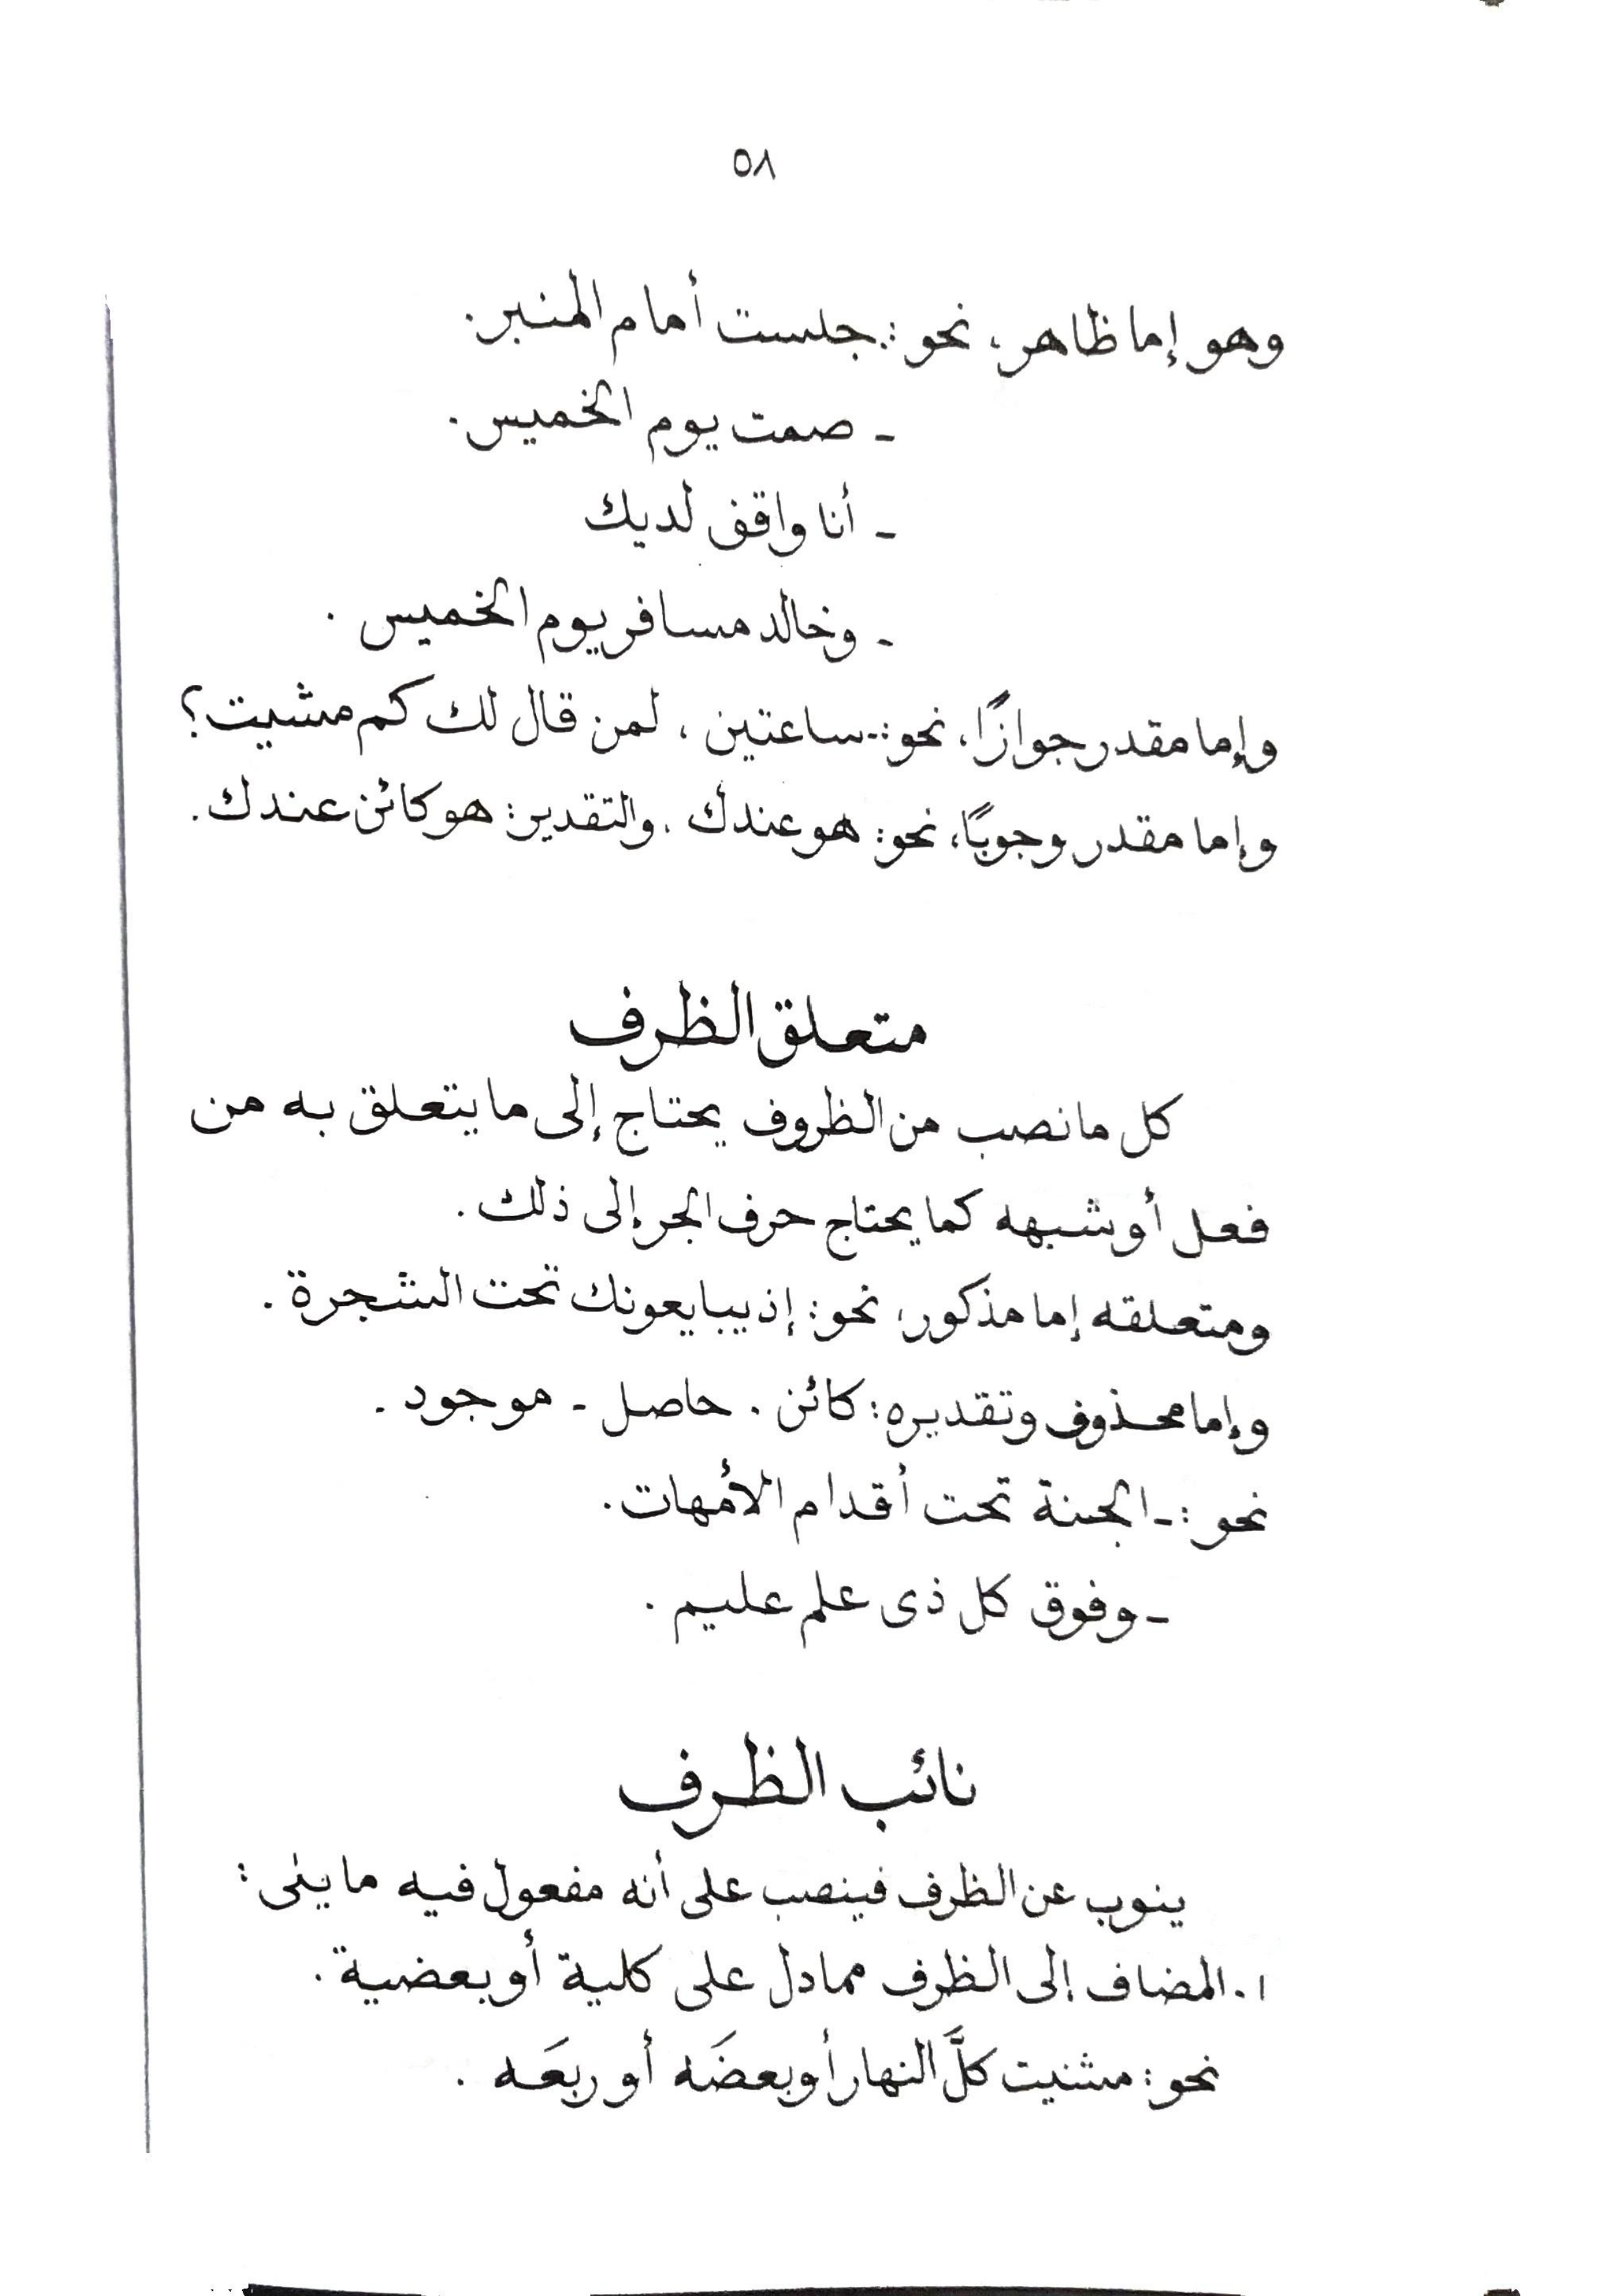 ٥٨
وهو إما ظاهر، نحو :. جلست أمام المنبر.
- صمت يوم الخميس.
- أنا واقف لديك
- وخالد مسافر يوم الخميس .
وإما مقدر جوازًا، نحو:- ساعتين ، لمن قال لك كم مشيت؟
وإما مقدر وجوبًا، نحو: هو عندك . والتقدير: هو كائن عندك.
متعلق الظرف
كل ما نصب من الظروف يحتاج إلى ما يتعلق به من
فعل أو شبهه كما يحتاج حرف الجر إلى ذلك .
ومتعلقه إما مذكور، نحو: إذ يبايعونك تحت الشجرة .
وإما محذوف وتقديره: كائن . حاصل - موجود .
نحو :- الجنة تحت أقدام الأمهات.
- وفوق كل ذى علم عليم .
نائب الظرف
ينوب عن الظرف فينصب على أنه مفعول فيه ما يلى :
١. المضاف إلى الظرف مما دل على كلية أو بعضية .
نحو: مشيت كلَّ النهار أو بعضَه أو ربعَه .